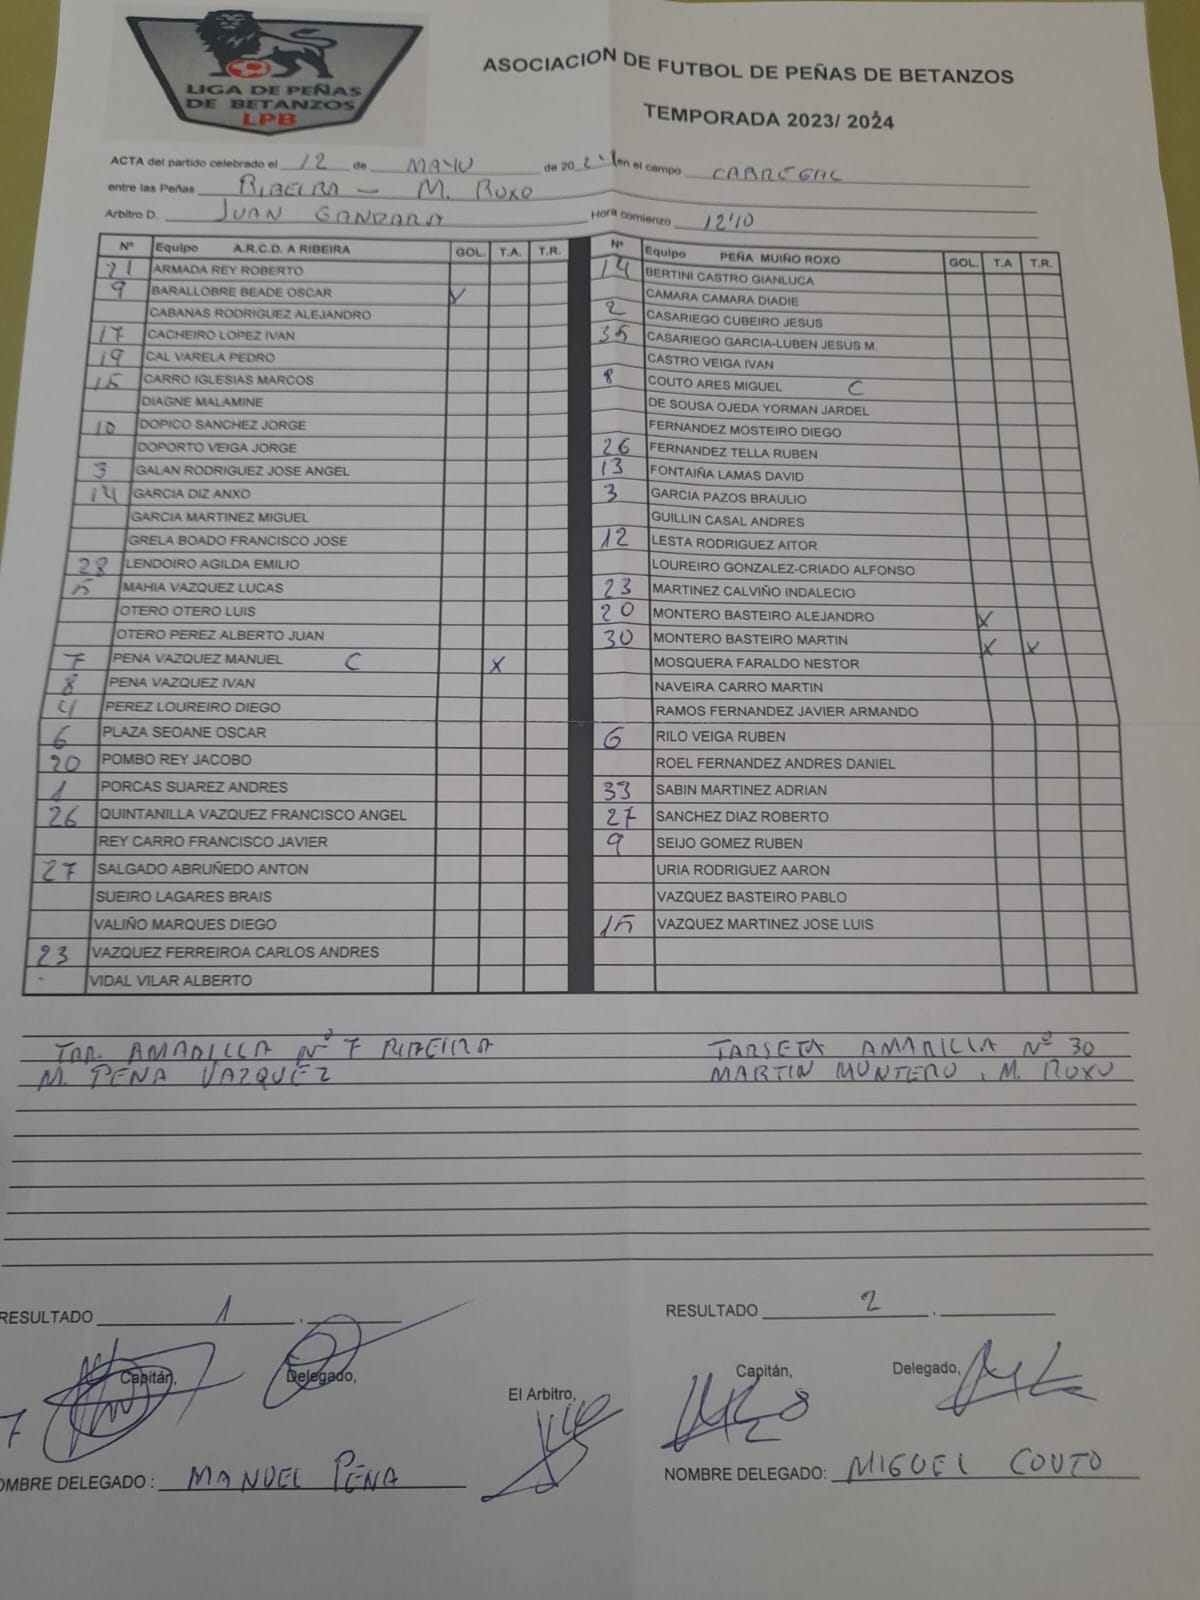 LIGA DE PEÑAS
DE BETANZOS
LPB
ASOCIACION DE FUTBOL DE PEÑAS DE BETANZOS
TEMPORADA 2023/ 2024
ACTA del partido celebrado el 12 de MAYO de 2024 en el campo CARREGAL
entre las Peñas RIBEIRA - M. ROXO
Arbitro D. JUAN GANDARA Hora comienzo 12'10
Nº Equipo A.R.C.D. A RIBEIRA GOL. T.A. T.R.
21 ARMADA REY ROBERTO
9 BARALLOBRE BEADE OSCAR
CABANAS RODRIGUEZ ALEJANDRO
17 CACHEIRO LOPEZ IVAN
19 CAL VARELA PEDRO
15 CARRO IGLESIAS MARCOS
DIAGNE MALAMINE
10 DOPICO SANCHEZ JORGE
DOPORTO VEIGA JORGE
3 GALAN RODRIGUEZ JOSE ANGEL
14 GARCIA DIZ ANXO
GARCIA MARTINEZ MIGUEL
GRELA BOADO FRANCISCO JOSE
28 LENDOIRO AGILDA EMILIO
5 MAHIA VAZQUEZ LUCAS
OTERO OTERO LUIS
OTERO PEREZ ALBERTO JUAN
7 PENA VAZQUEZ MANUEL C X
8 PENA VAZQUEZ IVAN
4 PEREZ LOUREIRO DIEGO
6 PLAZA SEOANE OSCAR
20 POMBO REY JACOBO
1 PORCAS SUAREZ ANDRES
26 QUINTANILLA VAZQUEZ FRANCISCO ANGEL
REY CARRO FRANCISCO JAVIER
27 SALGADO ABRUÑEDO ANTON
SUEIRO LAGARES BRAIS
VALIÑO MARQUES DIEGO
23 VAZQUEZ FERREIROA CARLOS ANDRES
VIDAL VILAR ALBERTO
Nº Equipo PEÑA MUIÑO ROXO GOL. T.A T.R.
14 BERTINI CASTRO GIANLUCA
CAMARA CAMARA DIADIE
2 CASARIEGO CUBEIRO JESUS
35 CASARIEGO GARCIA-LUBEN JESUS M.
CASTRO VEIGA IVAN
8 COUTO ARES MIGUEL C
DE SOUSA OJEDA YORMAN JARDEL
FERNANDEZ MOSTEIRO DIEGO
26 FERNANDEZ TELLA RUBEN
13 FONTAIÑA LAMAS DAVID
3 GARCIA PAZOS BRAULIO
GUILLIN CASAL ANDRES
12 LESTA RODRIGUEZ AITOR
LOUREIRO GONZALEZ-CRIADO ALFONSO
23 MARTINEZ CALVIÑO INDALECIO
20 MONTERO BASTEIRO ALEJANDRO X
30 MONTERO BASTEIRO MARTIN X X
MOSQUERA FARALDO NESTOR
NAVEIRA CARRO MARTIN
RAMOS FERNANDEZ JAVIER ARMANDO
6 RILO VEIGA RUBEN
ROEL FERNANDEZ ANDRES DANIEL
33 SABIN MARTINEZ ADRIAN
27 SANCHEZ DIAZ ROBERTO
9 SEIJO GOMEZ RUBEN
URIA RODRIGUEZ AARON
VAZQUEZ BASTEIRO PABLO
15 VAZQUEZ MARTINEZ JOSE LUIS
TAR. AMARILLA Nº 7 RIBEIRA
M. PENA VAZQUEZ
TARSETA AMARILLA Nº 30
MARTIN MONTERO, M. ROXO
RESULTADO 1
RESULTADO 2
Capitán, Delegado,
El Arbitro,
Capitán, Delegado,
7
8
OMBRE DELEGADO : MANUEL PENA
NOMBRE DELEGADO: MIGUEL COUTO